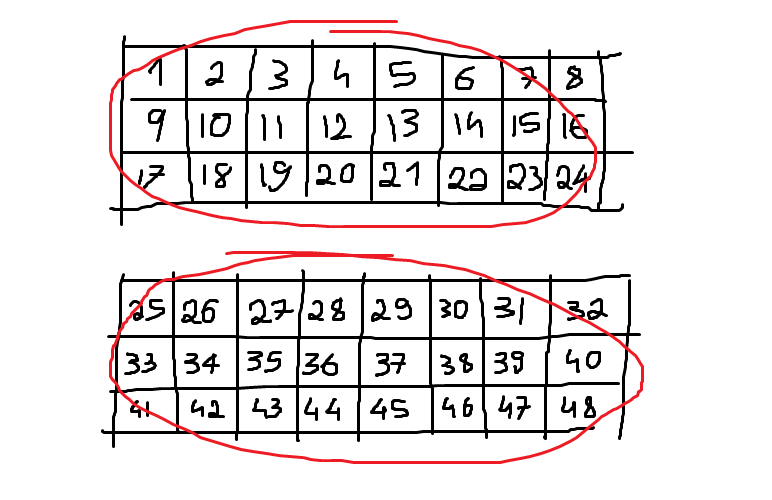 1 2 3 4 5 6 7 8
9 10 11 12 13 14 15 16
17 18 19 20 21 22 23 24
25 26 27 28 29 30 31 32
33 34 35 36 37 38 39 40
41 42 43 44 45 46 47 48